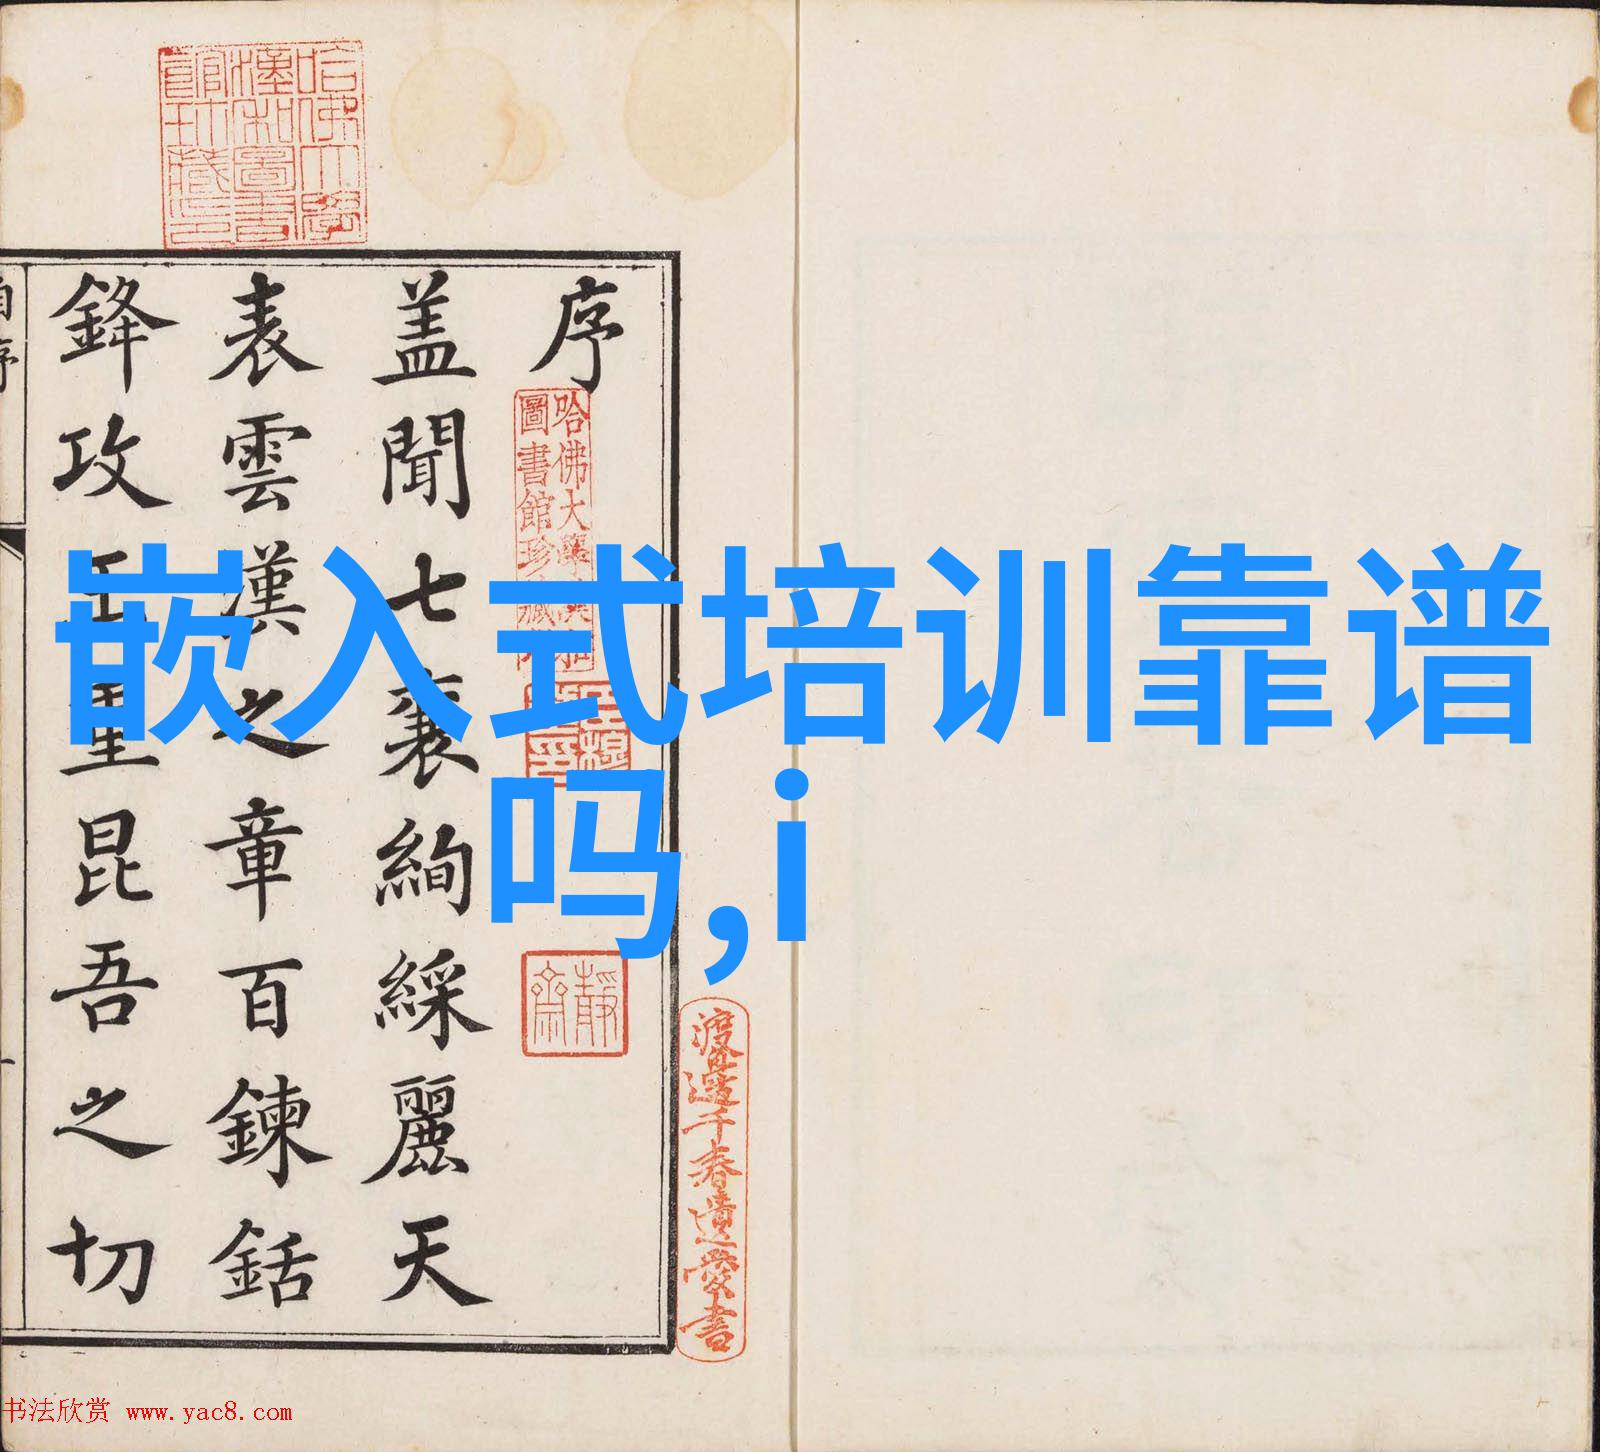 哈佛大學
漢和圖書
館珍藏印
序
哈佛大學漢和
圖書館珍藏印
靜齋
渡邊千春遺愛書
蓋聞七襄絢綵麗天
表雲漢之章百鍊銛
鋒攻玉重昆吾之切
自序
嵌入式培训靠谱
吗,i
书法欣赏 www.yac8.com